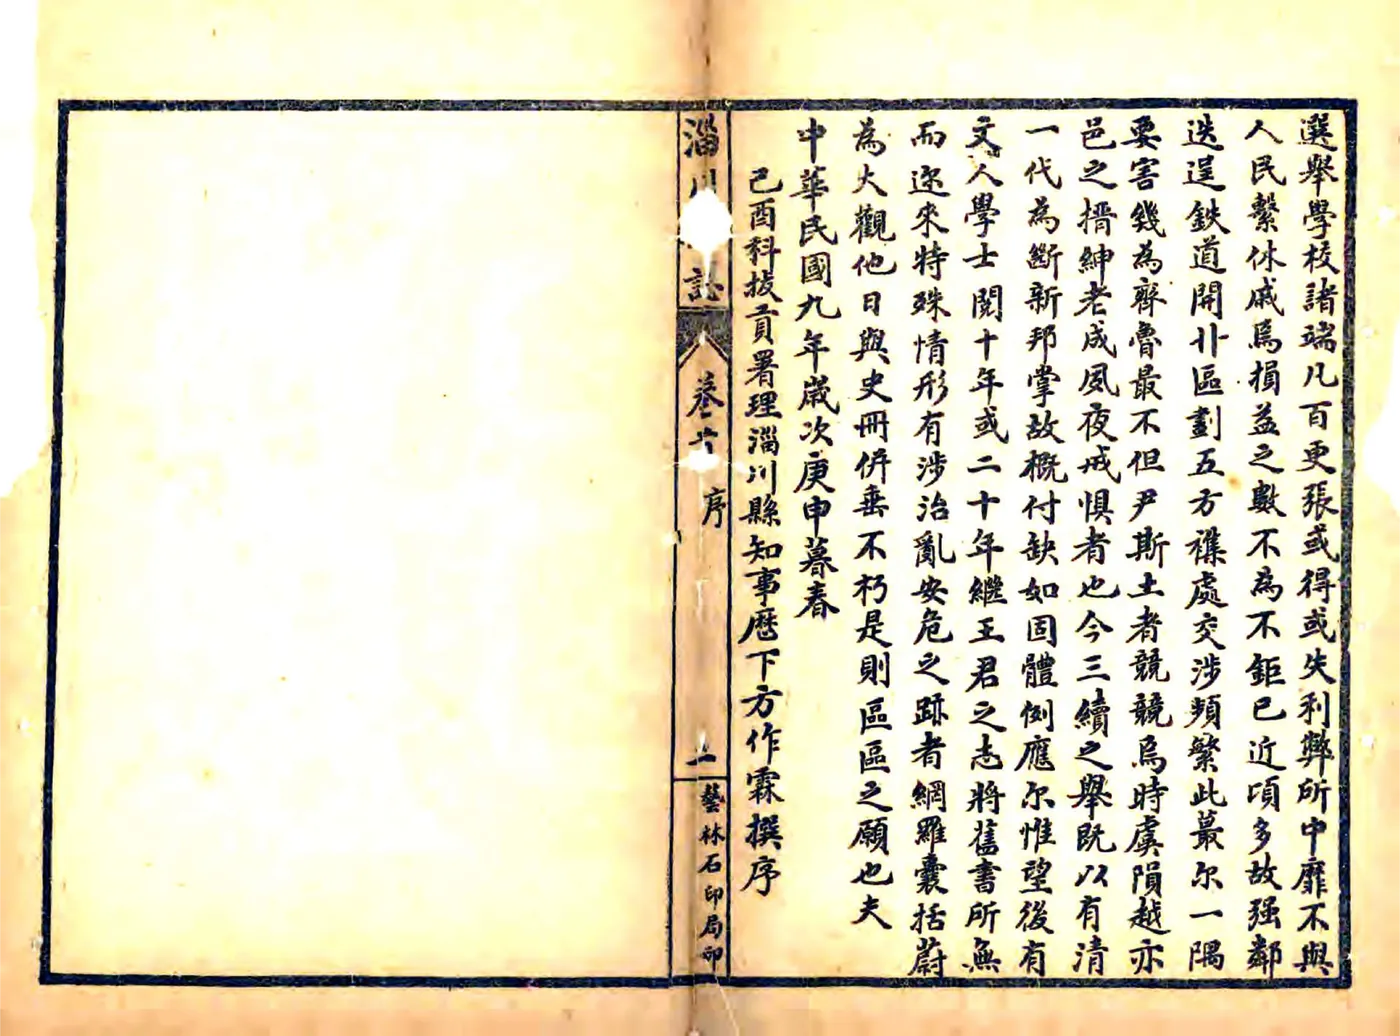 選舉學校諸端凡百更張或得或失利弊所中靡不與
人民繫休戚焉損益之數不為不鉅已近頃多故强鄰
迭逞鉄道開廾區劃五方襍處交涉頻繁此蕞尔一隅
要害幾為齊魯最不但尹斯土者競競焉時虞隕越亦
邑之搢紳老成夙夜戒惧者也今三續之舉既以有清
一代為斷新邦掌故概付缺如固體例應尔惟望後有
文人學士閱十年或二十年繼王君之志將舊書所無
而邇來特殊情形有涉治亂安危之跡者網羅囊括蔚
為大觀他日與史冊併垂不朽是則區區之願也夫
中華民國九年歲次庚申暮春
己酉科拔貢署理淄川縣知事歷下方作霖撰序
淄川 誌 卷首 序 二 藝林石印局印